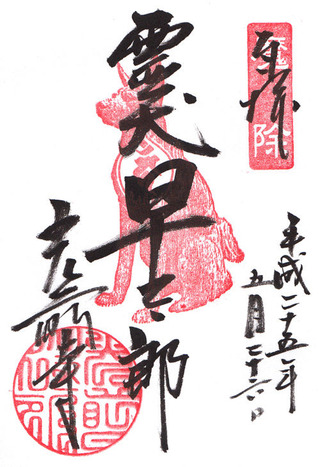 奉拝
魔除
平成二十五年
五月二十六日
霊犬早太郎
光前寺